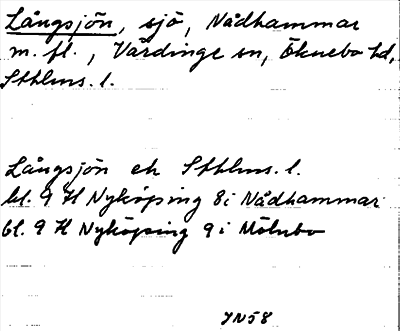 Långsjön, sjö, Nådhammar
m. fl., Vårdinge sn, Öknebo hd,
Sthlms. l.
Långsjön ek Sthlms. l.
bl. 9 H Nyköping 8i Nådhammar
bl. 9 H Nyköping 9i Mölnbo
JN58